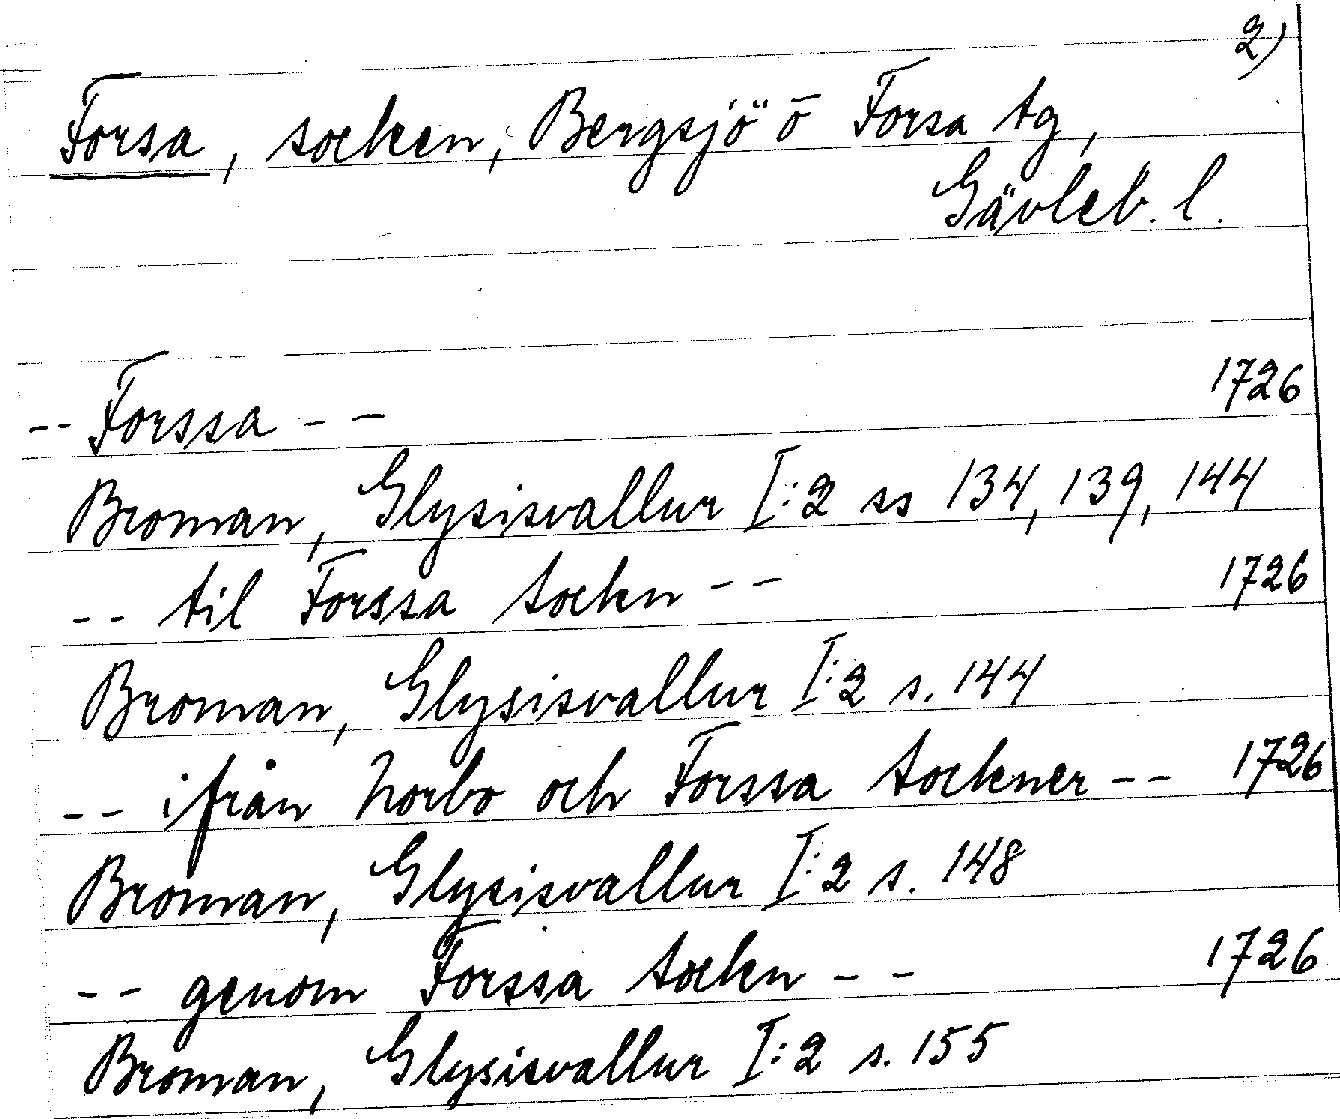 2)
Forsa, socken, Bergsjö o Forsa tg,
Gävleb. l.
-- Forssa -- 1726
Broman, Glysisvallur I:2 ss 134, 139, 144
-- til Forssa sockn -- 1726
Broman, Glysisvallur I:2 s. 144
-- ifrån Norbo och Forssa sockner -- 1726
Broman, Glysisvallur I:2 s. 148
-- genom Forssa sockn -- 1726
Broman, Glysisvallur I:2 s. 155